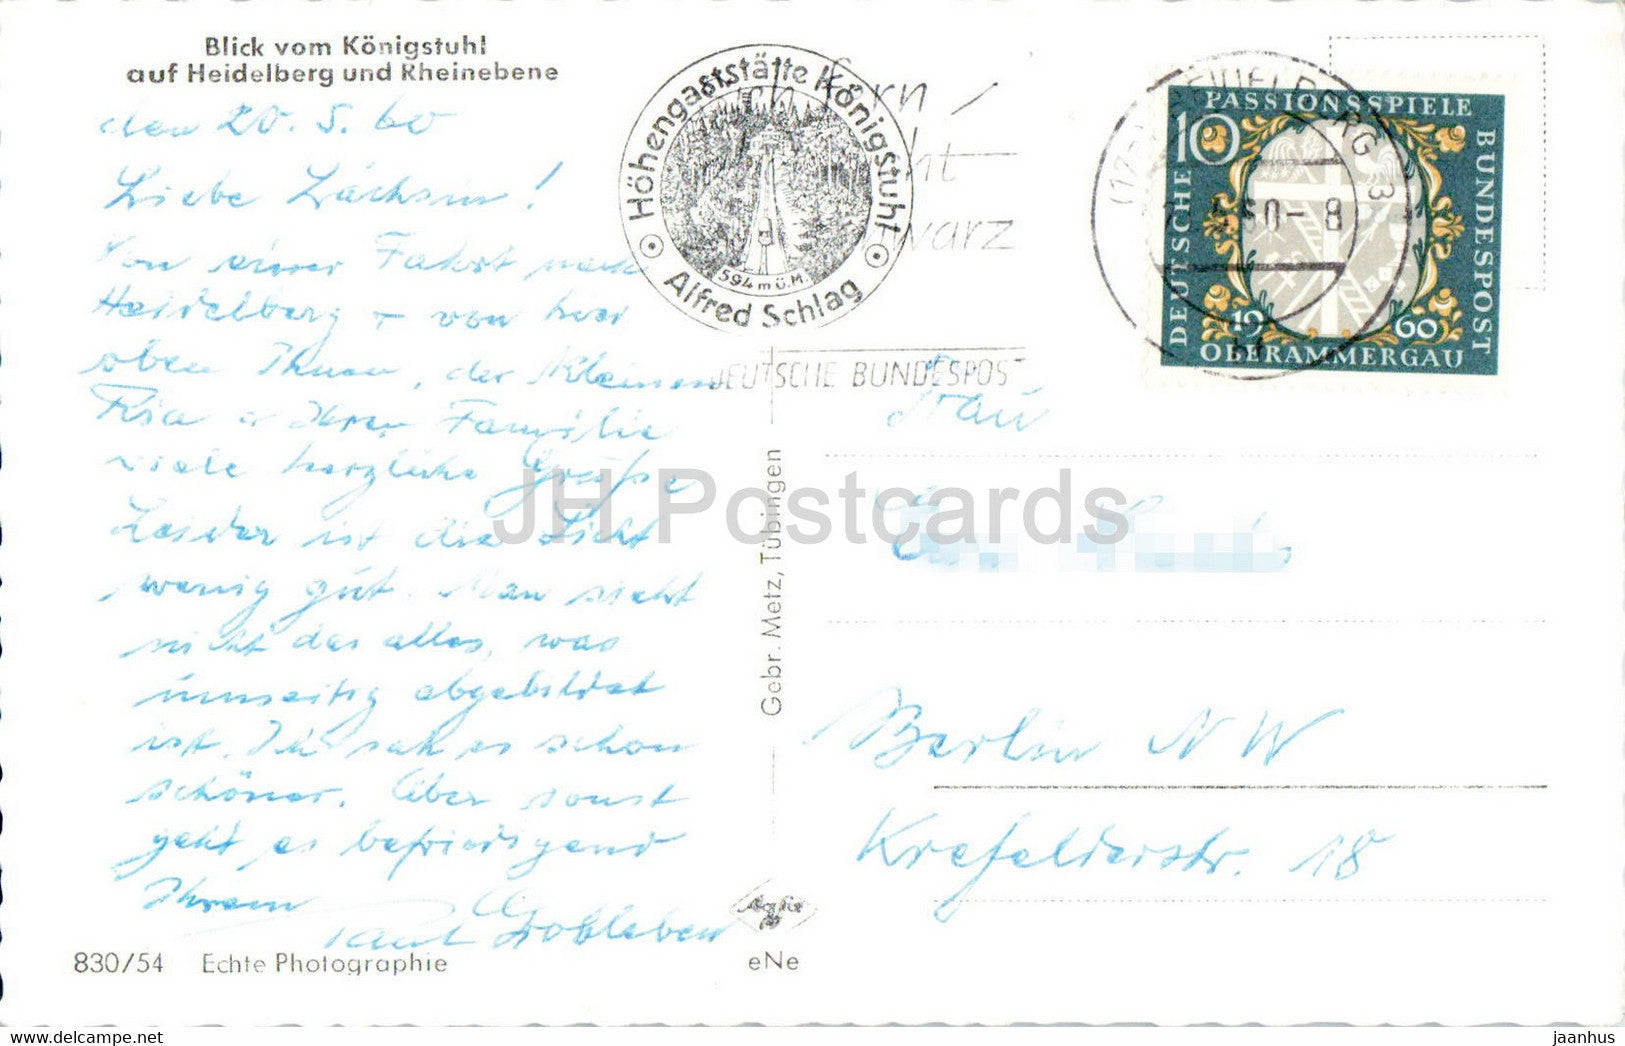 Blick vom Königstuhl
auf Heidelberg und Rheinebene
den 20. 5. 60
Liebe Sächsin!
Von einer Fahrt nach
Heidelberg + von hier
oben Ihnen, der Kleinen
Ria u Ihrer Familie
viele herzliche Grüße
Leider ist die Sicht
wenig gut. Man sieht
nicht das alles, was
umseitig abgebildet
ist. Ich sah es schon
schöner. Aber sonst
geht es befriedigend
Ihrem
Paul
830/54 Echte Photographie
Höhengaststätte Königstuhl
594 m ü. M.
Alfred Schlag
fern
warz
DEUTSCHE BUNDESPOS
HEIDELBERG
60-8
PASSIONSSPIELE
10
DEUTSCHE
BUNDESPOST
19 60
OBERAMMERGAU
Gebr. Metz, Tübingen
JH Postcards
Frau
Berlin NW
Krefelderstr. 18
Agfa
eNe
www.delcampe.net
jaanhus